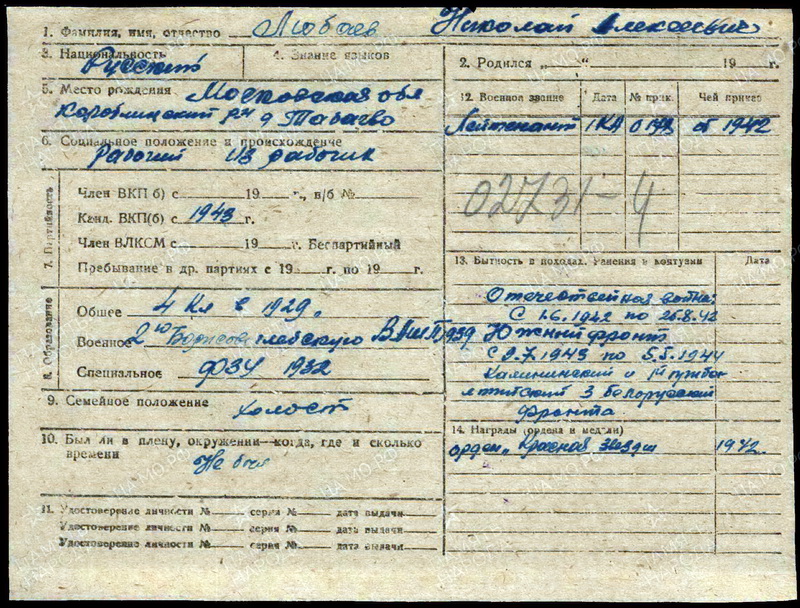 1. Фамилия, имя, отчество Любаев Николай Алексеевич
3. Национальность Русский
4. Знание языков
2. Родился „ “ 19 г.
5. Место рождения Московская обл
Кораблинский рн д Табаево
12. Военное звание Дата № прик. Чей приказ
Лейтенант 1КА об 1942
6. Социальное положение и происхождение
Рабочий из рабочих
02731-4
7. Партийность
Член ВКП б) с 19 г., п/б №
Канд. ВКП(б) с 1943 г.
Член ВЛКСМ с 19 г. Беспартийный
Пребывание в др. партиях с 19 г. по 19 г.
13. Бытность в походах. Ранения и контузии Дата
Отечественная война:
С 1.6.1942 по 25.8.42
Южный фронт
с 2.7.1943 по 5.5.1944
Калининский и 1й прибал
тийский 3 Белорусский
фронта
8. Образование
Общее 4 кл в 1929г
Военное 2ю Борисоглебскую ВАШП 1939
Специальное ФЗУ 1932
9. Семейное положение холост
14. Награды (ордена и медали)
орден „Красная Звезда 1942.
10. Был ли в плену, окружении—когда, где и сколько
времени Не был
11. Удостоверение личности № серия № дата выдачи
Удостоверение личности № серия № дата выдачи
Удостоверение личности № серия № дата выдачи